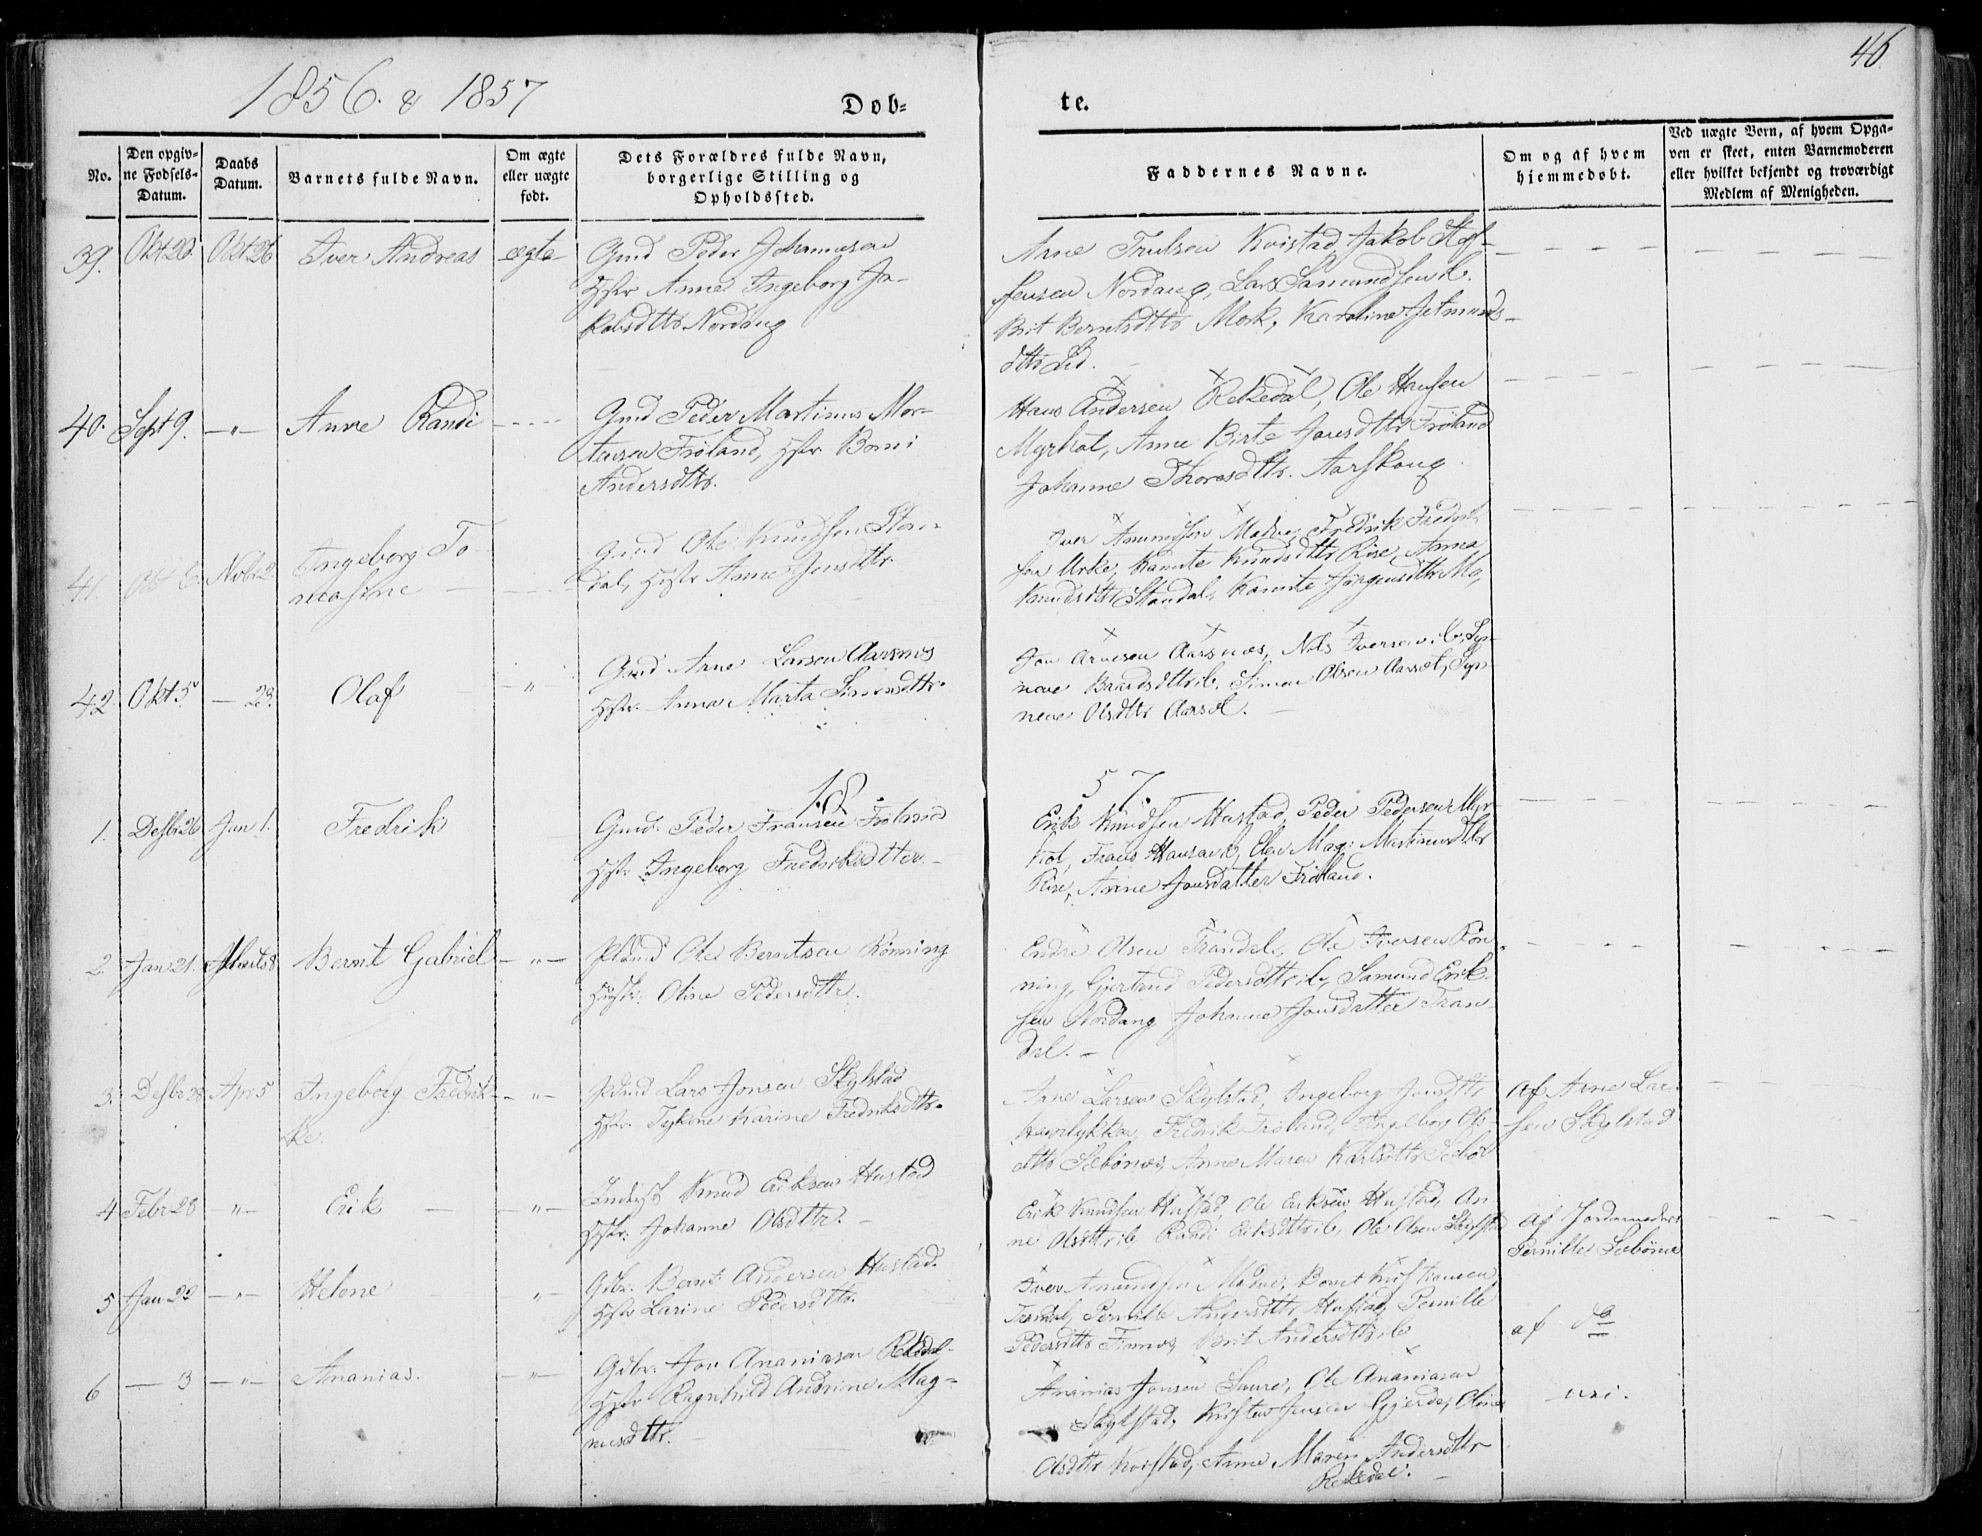 46
1856. & 1857
Dob=
te.
No.
Den opgiv=
ne Fodsels=
Datum.
Daabs
Datum.
Barnets fulde Navn.
Om ægte
eller uægte
født.
Dets Forældres fulde Navn,
borgerlige Stilling og
Opholdssted.
Faddernes Navne.
Om og af hvem
hjemmedøbt.
Ved uægte Born, af hvem Opga=
ven er skeet, enten Barnemoderen
eller hvilket bekjendt og troværdigt
Medlem af Menigheden.
39. Okt 20. Okt 26 Iver Andreas ægte
Gmd Peder Johannesen
Hstr Anne Ingeborg Ja-
kobsdttr Nordang
Arne Trulsen Kvistad, Jakob Stef-
fensen Nordang, Lars Samundsen ib.
Brit Berntsdttr Mork, Karoline Jetmunds-
dttr Lid.
40. Sept 9. — " — Anne Randi
Gmd Peder Martinus Mor-
tensen Frøland, Hstr Borni
Andersdttr.
Hans Andersen Rekedal, Ole Hansen
Myrhol, Anne Birte Jonsdttr Frøland
Johanne Thoresdttr. Aarskoug
41. Okt 6. Nvbr 2 Ingeborg To-
masine
Gmd Ole Knudsen Stan-
dal, Hstr Anne Jensdttr.
Iver Amundsen Madve, Fredrik Fredrik-
sen Urke, Kamte Knudsdttr Rise, Anna
Knudsdttr Standal, Kamte Jørgensdttr Mo,
42. Okt 5 — 23. Olaf "
Gmd Arne Larsen Aarsnes
Hstr. Anna Marta Simonsdttr.
Jon Arnesen Aarsnæs, Nils Iversen ib, Syn-
neve Baardsdttr ib. Simon Olsen Aarset, Syn-
neve Olsdttr Aarset.
18 57.
1. Desbr 26 Jan 1. Fredrik
Gmd. Peder Fransen Frøland
Hstr. Ingeborg Fredriksdtter.
Erik Knudsen Hustad, Peder Pedersen Myr-
hol, Frans Hansen ib, Elen Mag: Martinusdttr
Rise, Anne Jonsdatter Frøland.
2. Jan 21. Marts 8 Bernt Gabriel — " —
Plsmd Ole Berntsen Rønning
Hustr: Oline Pedersdttr.
Endre Olsen Trandal, Ole Iversen Røn-
ning, Gjertrud Pedersdttr ib, Samund Erik-
sen Nordang Johanne Jonsdatter Tran
dal.
3. Desbr 28 Apr 5 Ingeborg Fredrik-
ke — " —
Lars Jonsen Skylstad
Hstr. Karine Fredriksdttr.
Arne Larsen Skylstad, Ingeborg Jonsdttr
Fredrik Frøland, Ingeborg Ols-
dttr Sæbønes, Anne Maren Karlsdttr Sæbø
af Arne Lar-
sen Skylstad
4 Febr 28 — " — Erik — " —
Indst Knud Eriksen Hustad
Hstr: Johanne Olsdttr.
Erik Knudsen Hustad, Ole Eriksen Hustad, An-
ne Olsdttr ib, Randi Eriksdttr ib, Ole Olsen Skylstad
af Jordemoder
Pernille Sæbønes
5 Jan 22 — " — Helene "
Gbr. Bernt Andersen Hustad.
Hstr Larine Pedersdttr.
Iver Amundsen Madve, Bernt Kristiansen
Trandal, Pernille Andersdttr Hustad, Pernille
Pedersdttr Finnes, Brit Andersdttr ib
af do
6 — 3 — " — Ananias. — " —
Gbr. Jon Ananiasen Rekedal
Hstr Ragnhild Andrine Mag-
nusdttr.
Ananias Jonsen Saure, Ole Ananiasen
Skylstad, Kristen Jensen Gjerde, Oline
Olsdttr Kvistad, Anne Maren Andersdttr
Rekedal.
nei.